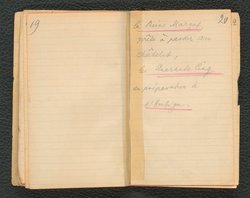 19
20
la Reine Margot
prête à passer au
Châtelet,
le
en préparation à
l'Ambigu.